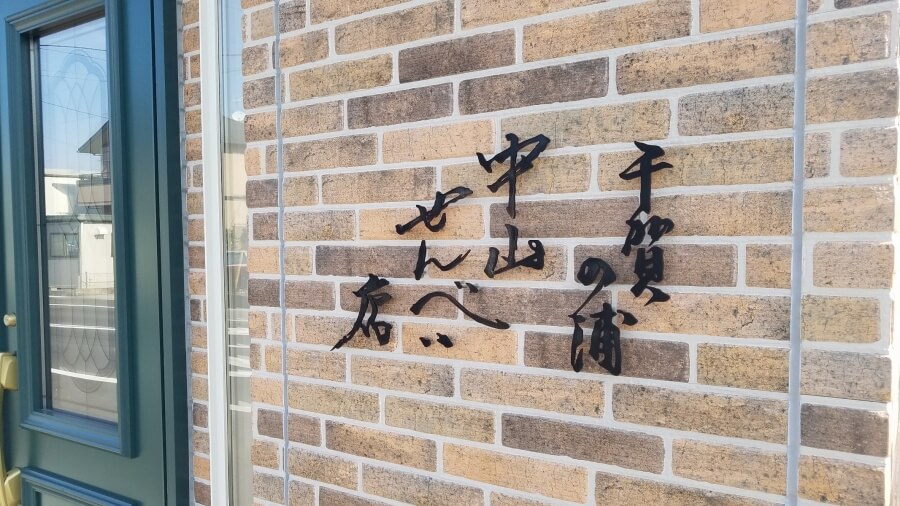 千賀の浦
中山
せんべい
店